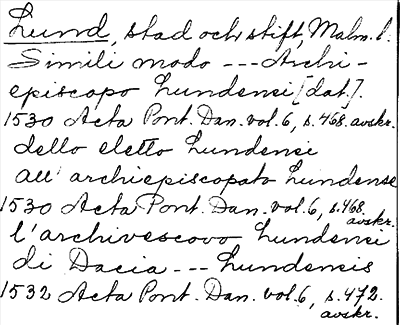 Lund, stad och stift, Malm. l.
Simili modo --- Archi-
episcopo Lundensi [dat.].
1530 Acta Pont. Dan. vol. 6, s. 468. avskr.
dello eletto Lundensi
all' archiepiscopato Lundense
1530 Acta Pont. Dan. vol. 6, s. 468.
avskr.
l'archivescovo Lundensi
di Dacia --- Lundensis
1532 Acta Pont. Dan. vol. 6, s. 472.
avskr.